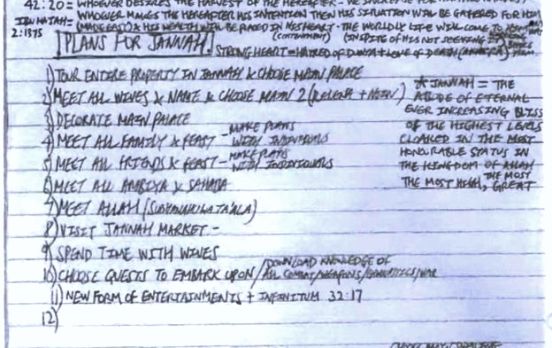 42:20 = WHOEVER DESIRES THE HARVEST OF THE HEREAFTER - WE INCREASE FOR HIM
IBN MAJAH = WHOEVER MAKES THE HEREAFTER HIS INTENTION THEN HIS SITUATION WILL BE GATHERED FOR HIM
2:1375 & HIS WEALTH WILL BE PLACED IN HIS HEART - THE WORLDLY LIFE WILL COME TO
(CONTENTMENT) IN SPITE OF HIS NOT SEEKING
PLANS FOR JANNAH STRONG HEART = HATRED OF DUNYA + LOVE OF DEATH
1) TOUR ENTIRE PROPERTY IN JANNAH & CHOOSE MAIN PALACE
2) MEET ALL WIVES & NAME & CHOOSE MAIN 2
3) DECORATE MAIN PALACE
4) MEET ALL FAMILY & FEAST - MAKE PLANS WITH INDIVIDUALS
5) MEET ALL FRIENDS & FEAST - MAKE PLANS WITH INDIVIDUALS
6) MEET ALL ANBIYA & SAHABA
7) MEET ALLAH (SUBHANAHU WA TA'ALA)
8) VISIT JANNAH MARKET -
9) SPEND TIME WITH WIVES
10) CHOOSE QUESTS TO EMBARK UPON / DOWNLOAD KNOWLEDGE OF ALL COMBAT/WEAPONS/ /WAR
11) NEW FORM OF ENTERTAINMENTS + INFINITUM 32:17
12)
* JANNAH = THE
ABODE OF ETERNAL
EVER INCREASING BLISS
OF THE HIGHEST LEVELS
CLOAKED IN THE MOST
HONORABLE STATUS IN
THE KINGDOM OF ALLAH
THE MOST HIGH, THE MOST GREAT